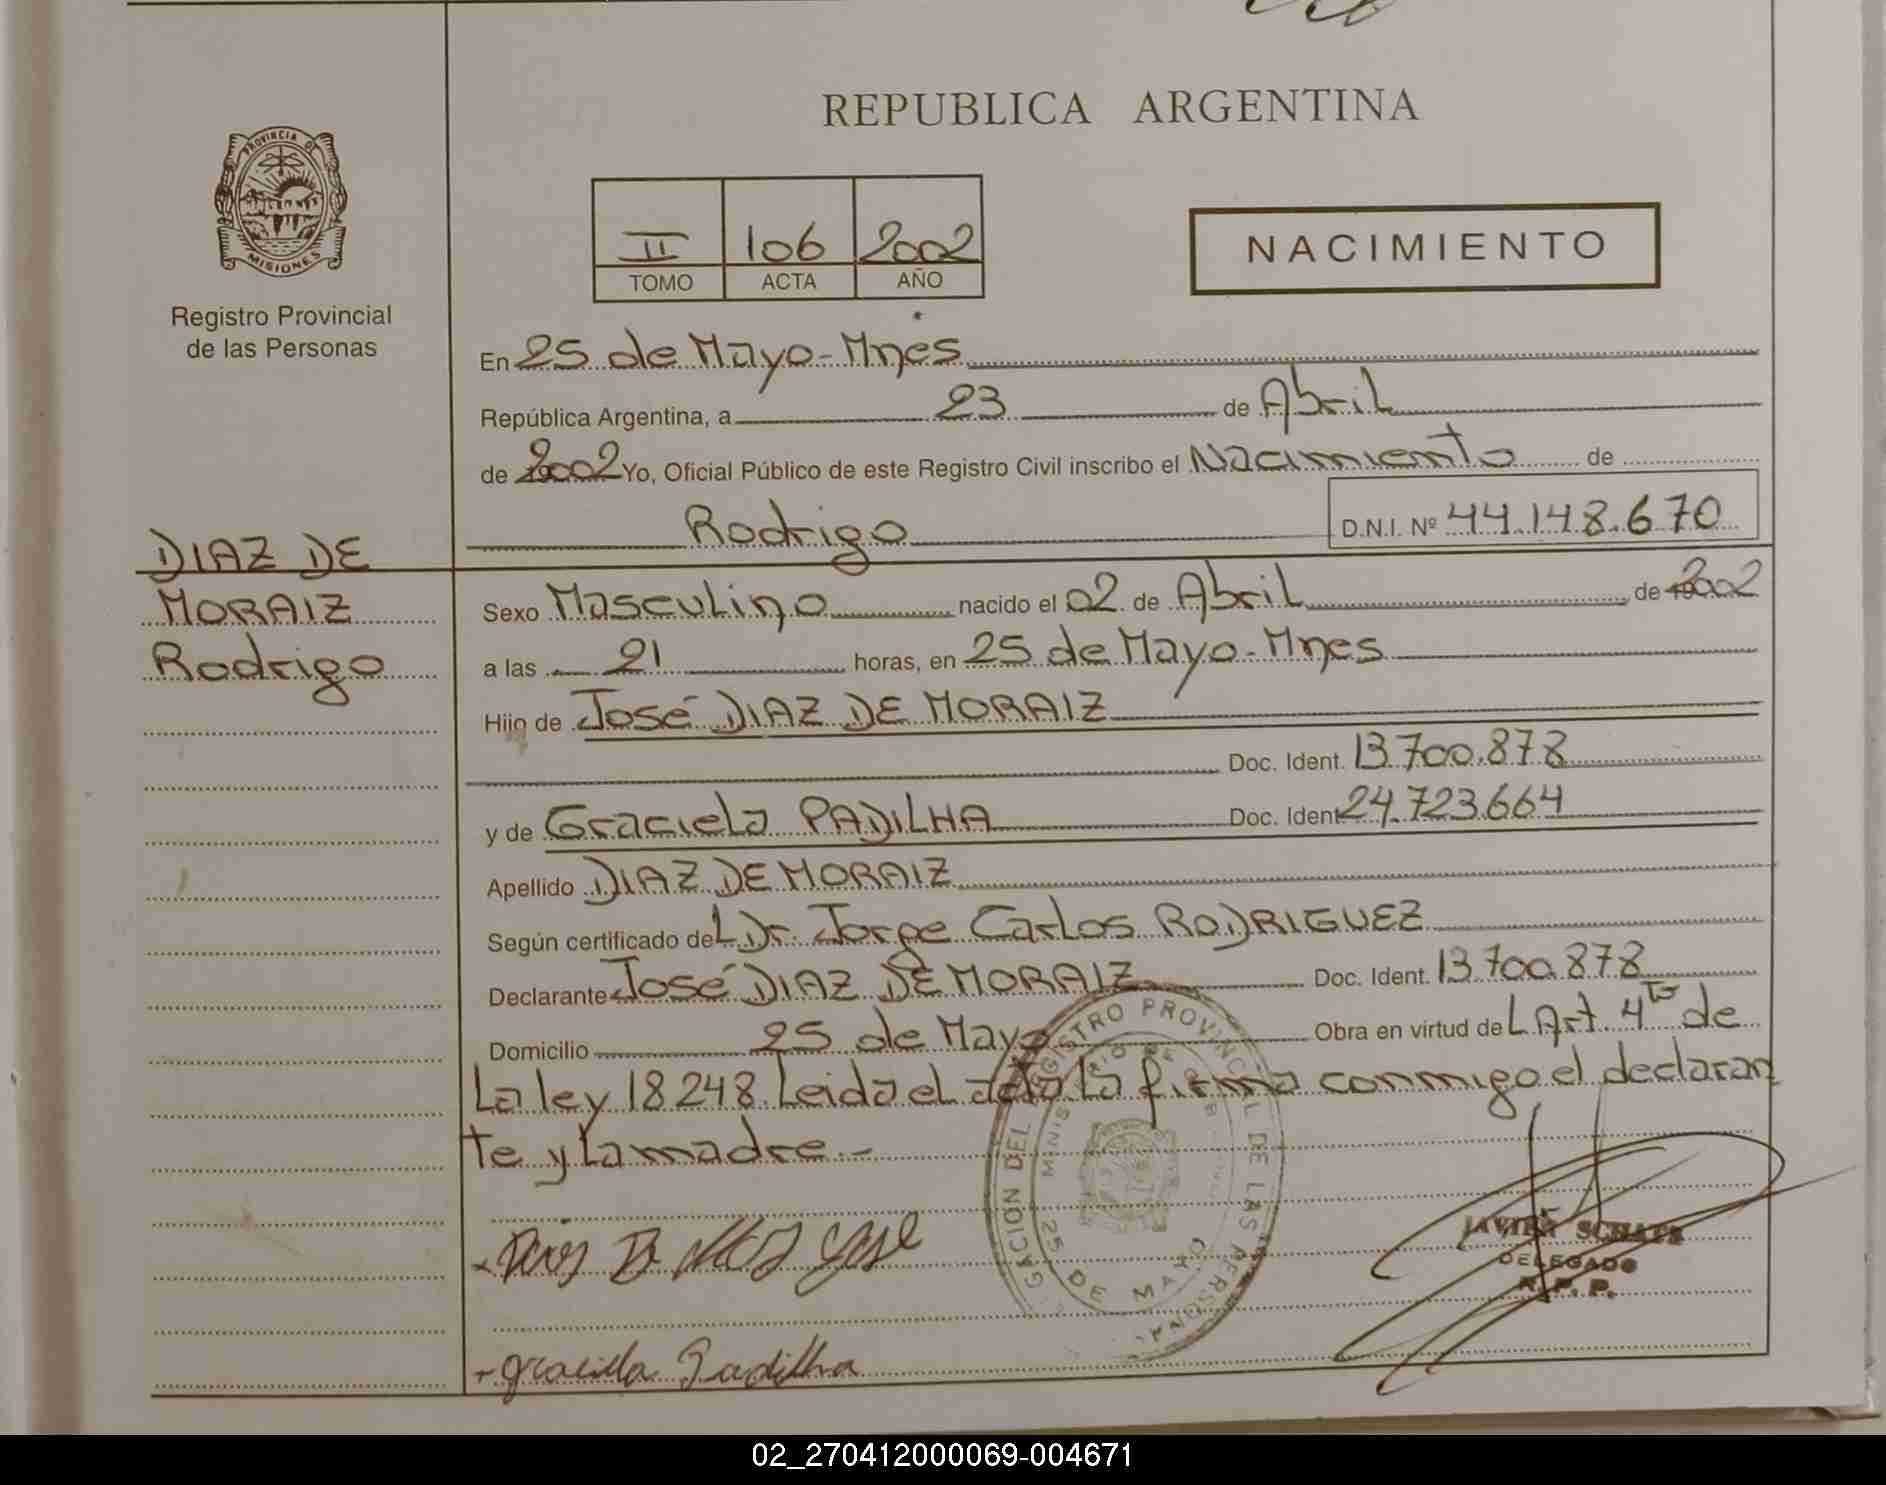 REPUBLICA ARGENTINA
PROVINCIA DE
MISIONES
Registro Provincial
de las Personas
II 106 2002
TOMO ACTA AÑO
NACIMIENTO
En 25 de Mayo - Mnes
República Argentina, a 23 de Abril
de 2002 Yo, Oficial Público de este Registro Civil inscribo el Nacimiento de
Rodrigo D.N.I. Nº 44.148.670
DIAZ DE
MORAIZ
Rodrigo
Sexo Masculino nacido el 02 de Abril de 2002
a las 21 horas, en 25 de Mayo - Mnes
Hijo de José DIAZ DE MORAIZ
Doc. Ident. 13.700.878
y de Graciela PADILHA Doc. Ident. 24.723.664
Apellido DIAZ DE MORAIZ
Según certificado del Dr. Jorge Carlos RODRIGUEZ
Declarante José DIAZ DE MORAIZ Doc. Ident. 13.700.878
Domicilio 25 de Mayo Obra en virtud del Art. 4to de
la ley 18248. Leida el acta la firma conmigo el declaran
te y la madre.-
REGISTRO PROVINCIAL DE LAS PERSONAS
25 DE MAYO
JAVIER
DELEGADO
R. P. P.
Graciela Padilha
02_270412000069-004671